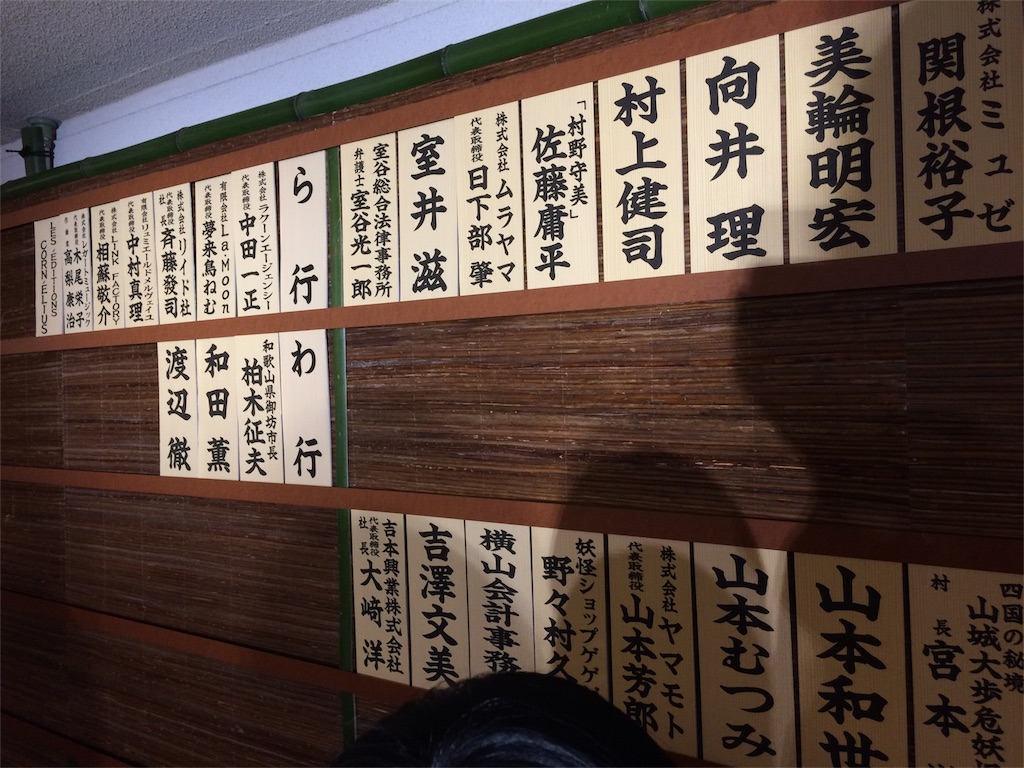 株式会社ミュゼ
関根裕子
美輪明宏
向井理
村上健司
「村野守美」
佐藤庸平
株式会社ムラヤマ
代表取締役
日下部肇
室井滋
室谷総合法律事務所
弁護士室谷光一郎
ら行
株式会社ラクーンエージェンシー
代表取締役
中田一正
有限会社La-Moon
代表取締役
夢来鳥ねむ
株式会社リイド社
代表取締役
社長
斉藤發司
有限会社リュミエールドメルヴェイユ
代表取締役
中村真理
株式会社LINK FACTORY
代表取締役
相蘇敬介
株式会社レガートミュージック
代表取締役
木尾栄子
高梨康治
LES ÉDITIONS
CORNÉLIUS
わ行
和歌山県御坊市長
柏木征夫
和田薫
渡辺徹
四国の秘境
山城大歩危妖
村長
宮本
山本和世
山本むつみ
株式会社ヤマモト
代表取締役
山本芳郎
妖怪ショップゲゲ
野々村久
横山会計事務
吉澤文美
吉本興業株式会社
代表取締役
社長
大﨑洋